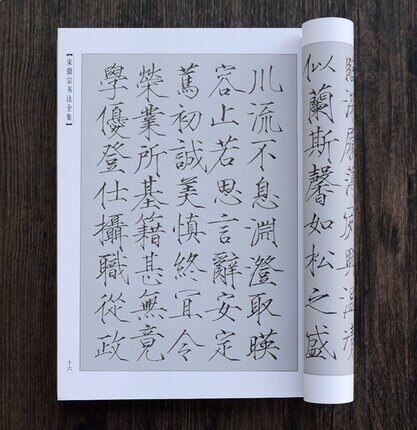 臨深履薄夙興温凊
似蘭斯馨如松之盛
川流不息淵澄取暎
容止若思言辭安定
篤初誠美慎終宜令
榮業所基籍甚無竟
學優登仕攝職從政
【宋徽宗书法全集】
十六